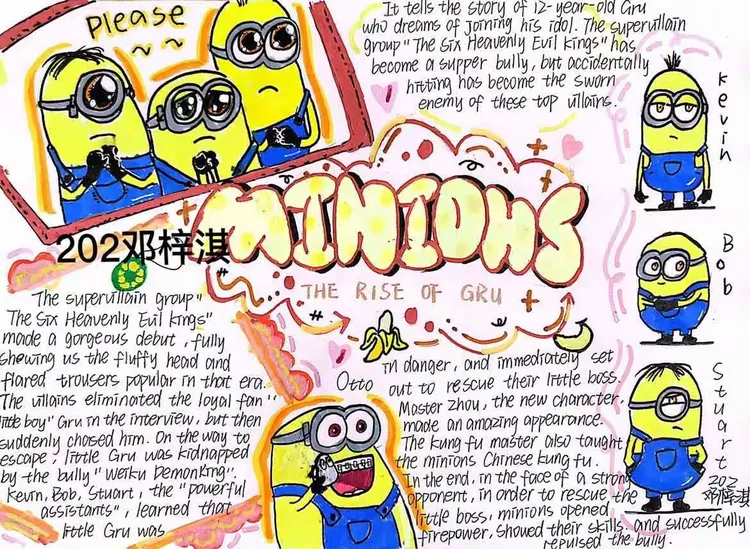 Please
It tells the story of 12-year-old Gru
who dreams of joining his idol. The supervillain
group "The Six Heavenly Evil Kings" has
become a supper bully, but accidentally
hitting has become the sworn
enemy of these top villains.
Kevin
MINIONS
THE RISE OF GRU
202邓梓淇
Bob
The supervillain group"
The Six Heavenly Evil Kings"
made a gorgeous debut, fully
showing us the fluffy head and
flared trousers popular in that era.
The villains eliminated the loyal fan"
little boy" Gru in the interview, but then
suddenly chased him. On the way to
escape, little Gru was kidnapped
by the bully "Weiku DemonKing".
Kevin, Bob, Stuart, the "powerful
assistants", learned that
little Gru was
Otto
in danger, and immediately set
out to rescue their little boss.
Master Zhou, the new character,
made an amazing appearance.
The kung fu master also taught
the minions Chinese kung fu.
In the end, in the face of a strong
opponent, in order to rescue the
little boss, minions opened
firepower, showed their skills, and successfully
repulsed the bully.
Stuart
202
邓梓淇